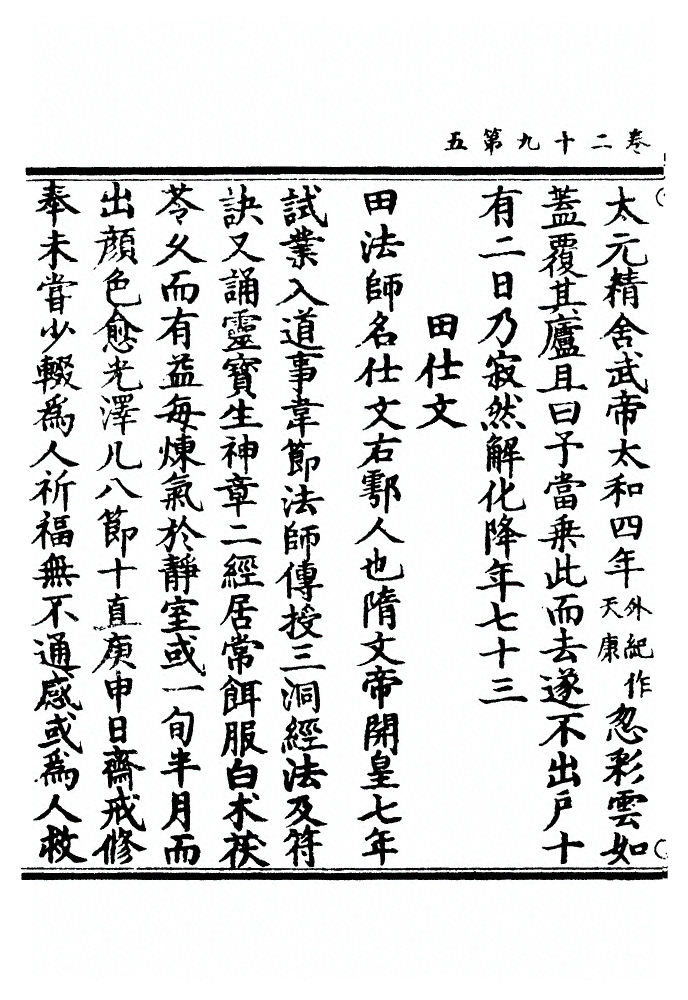 卷二十九第五
太元精舍武帝太和四年外紀作天康忽彩雲如
蓋覆其廬且曰予當乗此而去遂不出戶十
有二日乃寂然解化降年七十三
田仕文
田法師名仕文右鄠人也隋文帝開皇七年
試業入道事韋節法師傳授三洞經法及符
訣又誦靈寶生神章二經居常餌服白术茯
苓乆而有益每煉氣於靜室或一旬半月而
出顔色愈光澤凡八節十直庚申日齋戒修
奉未嘗少輟爲人祈福無不通感或爲人救